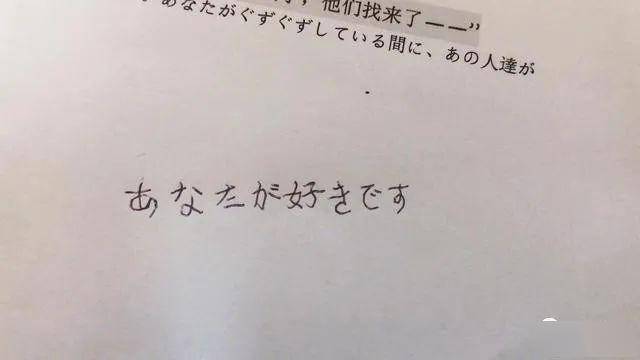 他们找来了——”
あなたがぐずぐずしている間に、あの人達が
あなたが好きです